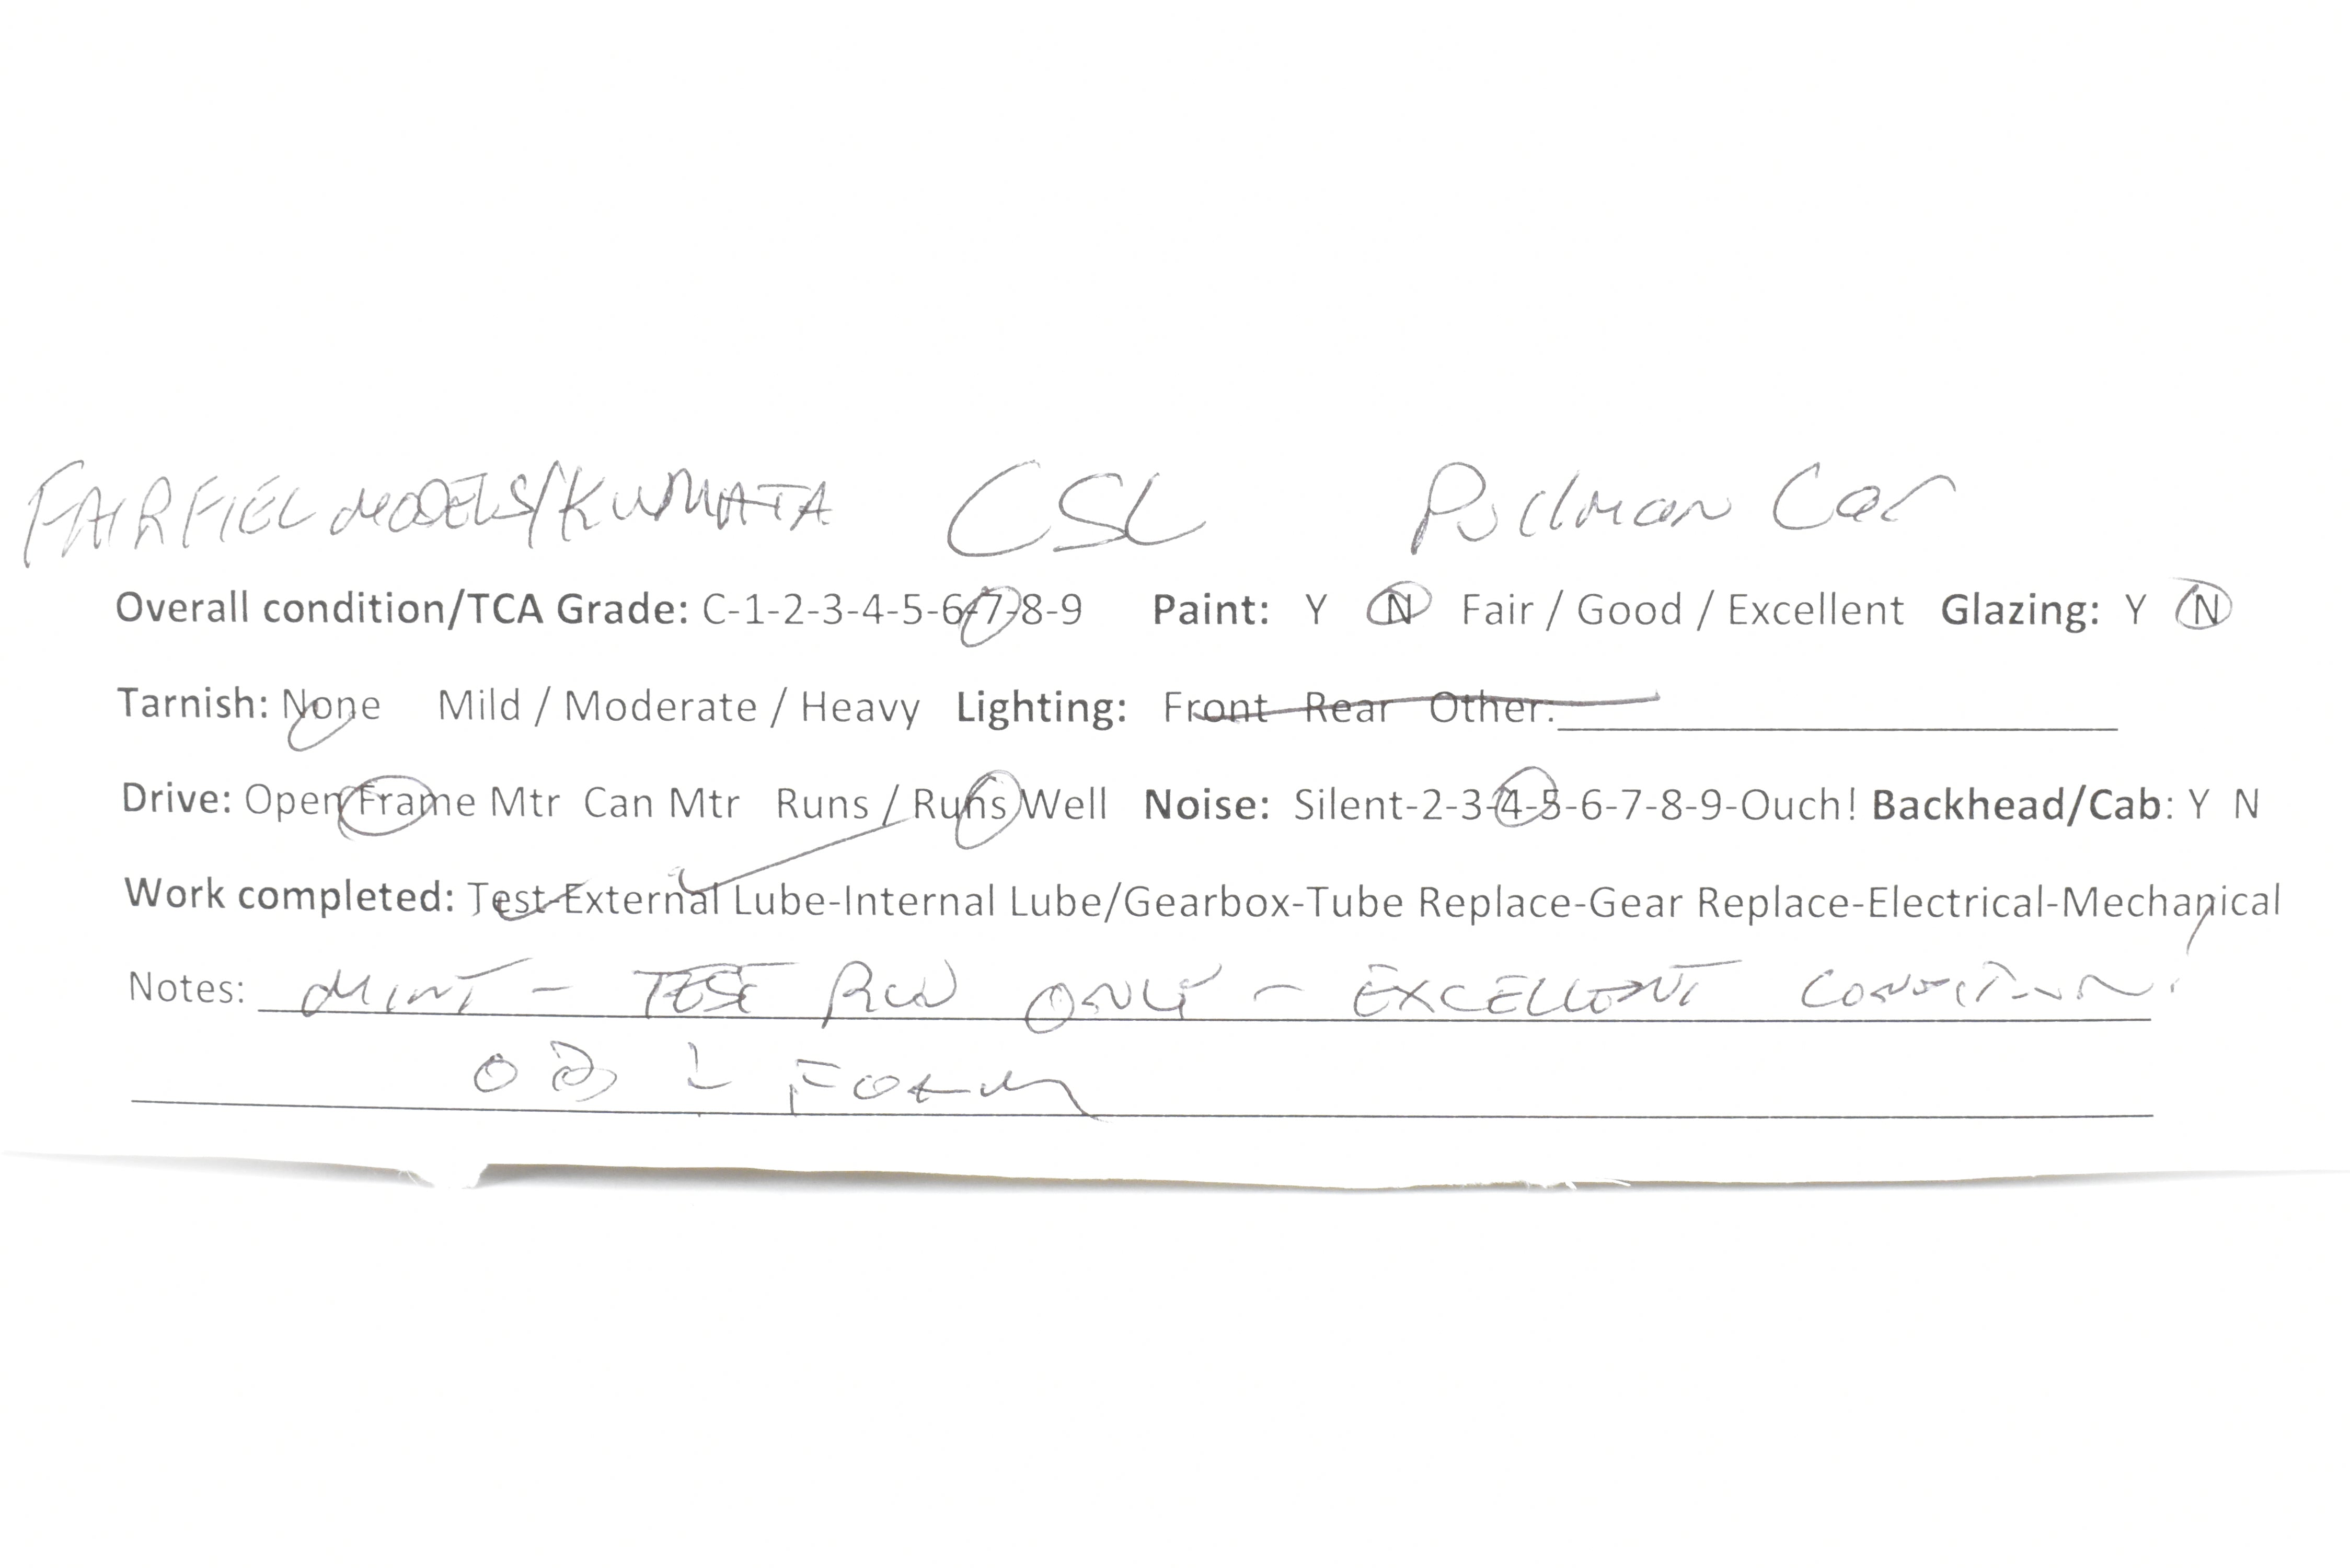 FAIRFIEL MODELS/KUMATA CSL Pullman Car
Overall condition/TCA Grade: C-1-2-3-4-5-6-7-8-9 Paint: Y N Fair / Good / Excellent Glazing: Y N
Tarnish: None Mild / Moderate / Heavy Lighting: Front Rear Other:
Drive: Open Frame Mtr Can Mtr Runs / Runs Well Noise: Silent-2-3-4-5-6-7-8-9-Ouch! Backhead/Cab: Y N
Work completed: Test-External Lube-Internal Lube/Gearbox-Tube Replace-Gear Replace-Electrical-Mechanical
Notes: MINT - TEST RUN ONLY - EXCELLENT CONDITION!
OB & FOAM